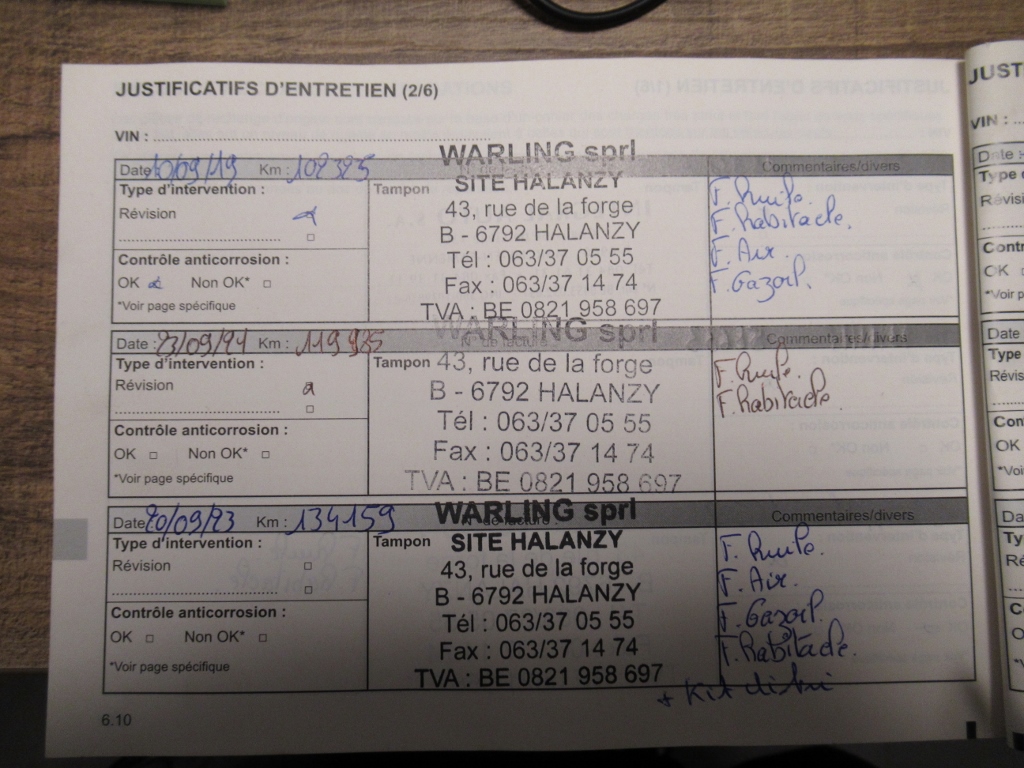 JUSTIFICATIFS D'ENTRETIEN (2/6)
VIN :
Date 10/09/19 Km : 102325
WARLING sprl
Commentaires/divers
Type d'intervention :
Révision
Contrôle anticorrosion :
OK Non OK*
*Voir page spécifique
Tampon
SITE HALANZY
43, rue de la forge
B - 6792 HALANZY
Tél : 063/37 05 55
Fax : 063/37 14 74
TVA : BE 0821 958 697
F. Huile.
F. Habitacle.
F. Air.
F. Gazoil.
Date : 23/09/ Km : 119925
WARLING sprl
N° de facture :
Commentaires/divers
Type d'intervention :
Révision
Contrôle anticorrosion :
OK Non OK*
*Voir page spécifique
Tampon
43, rue de la forge
B - 6792 HALANZY
Tél : 063/37 05 55
Fax : 063/37 14 74
TVA : BE 0821 958 697
F. Huile.
F. Habitacle.
Date 20/09/23 Km : 134159
WARLING sprl
N° de facture :
Commentaires/divers
Type d'intervention :
Révision
Contrôle anticorrosion :
OK Non OK*
*Voir page spécifique
Tampon
SITE HALANZY
43, rue de la forge
B - 6792 HALANZY
Tél : 063/37 05 55
Fax : 063/37 14 74
TVA : BE 0821 958 697
F. Huile.
F. Air.
F. Gazoil.
F. Habitacle.
+ Kit distri
6.10
JUST
VIN :
Date